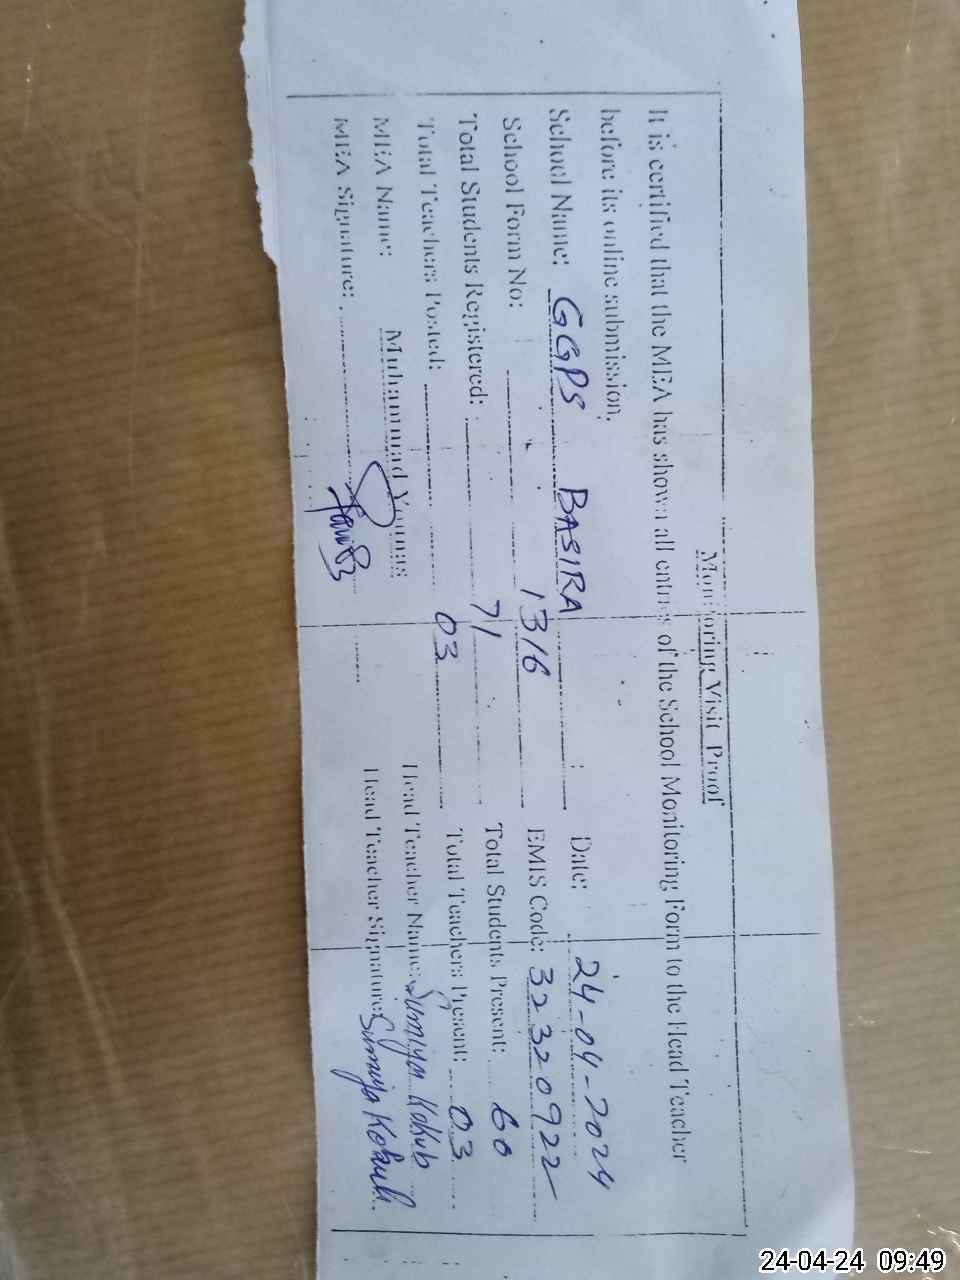 Monitoring Visit Proof
It is certified that the MEA has shown all entries of the School Monitoring Form to the Head Teacher
before its online submission.
School Name: GGPS BASIRA Date: 24-04-2024
School Form No: 1316 EMIS Code: 32320922
Total Students Registered: 71 Total Students Present: 60
Total Teachers Posted: 03 Total Teachers Present: 03
MEA Name: Muhammad Younas Head Teacher Name: Sumiya Kokub
MEA Signature: Head Teacher Signature: Sumiya Kokub
24-04-24 09:49